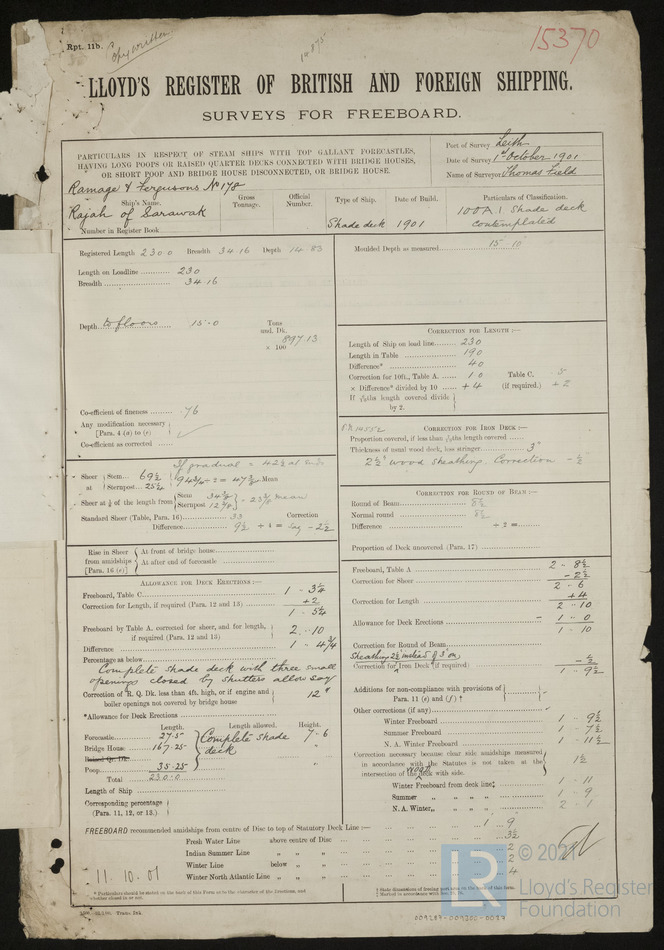 Rpt. 11b.
Copy written
15370
LLOYD'S REGISTER OF BRITISH AND FOREIGN SHIPPING.
SURVEYS FOR FREEBOARD.
PARTICULARS IN RESPECT OF STEAM SHIPS WITH TOP GALLANT FORECASTLES,
HAVING LONG POOPS OR RAISED QUARTER DECKS CONNECTED WITH BRIDGE HOUSES,
OR SHORT POOP AND BRIDGE HOUSE DISCONNECTED, OR BRIDGE HOUSE.
Port of Survey Leith
Date of Survey 1st October 1901
Name of Surveyor Thomas Field
Ramage & Fergusons No 178
Ship's Name. Gross Tonnage. Official Number. Type of Ship. Date of Build. Particulars of Classification.
Rajah of Sarawak Shade deck 1901 100A1 Shade deck contemplated
Number in Register Book
Registered Length 230.0 Breadth 34.16 Depth 14.83
Length on Loadline 230
Breadth 34.16
Depth to floors 15.0
Tons und. Dk. 897.13
× 100
Co-efficient of fineness .76
Any modification necessary
[Para. 4 (a) to (e)
Co-efficient as corrected
If gradual = 42½ at ends
Sheer at Stem 69½
Sternpost 25¼
94¾ ÷ 2 = 47⅜ Mean
Sheer at ⅛ of the length from Stem 34¾
Sternpost 12⅛
= 23⅜ mean
Standard Sheer (Table, Para. 16) 33 Correction
Difference 9½ ÷ 4 = say - 2½
Rise in Sheer from amidships [Para. 16 (e)]
At front of bridge house
At after end of forecastle
ALLOWANCE FOR DECK ERECTIONS :—
Freeboard, Table C 1 - 3¼
Correction for Length, if required (Para. 12 and 13) +2
1 - 5¼
Freeboard by Table A. corrected for sheer, and for length, if required (Para. 12 and 13) 2 - 10
Difference 1 - 4¾
Percentage as below
Complete shade deck with three small
openings closed by shutters allow say
Correction of R. Q. Dk. less than 4ft. high, or if engine and
boiler openings not covered by bridge house 12"
*Allowance for Deck Erections
Length. Length allowed. Height.
Forecastle 27.5 Complete shade deck 7-6
Bridge House 167.25
Raised Qr. Dk.
Poop 35.25
Total 230.0
Length of Ship
Corresponding percentage
(Para. 11, 12, or 13.)
Moulded Depth as measured 15 10
CORRECTION FOR LENGTH :—
Length of Ship on load line 230
Length in Table 190
Difference* 40
Correction for 10ft., Table A. 1.0 Table C. .5
× Difference* divided by 10 + 4 (if required.) + 2
CORRECTION FOR IRON DECK :—
Thickness of usual wood deck, less stringer 3"
2½" wood sheathing. Correction - ½
CORRECTION FOR ROUND OF BEAM :—
Round of Beam 8½
Normal round 8½
Difference ÷ 2 =
Proportion of Deck uncovered (Para. 17)
Freeboard, Table A 2 - 8½
Correction for Sheer - 2½
2 - 6
Correction for Length + 4
2 - 10
Allowance for Deck Erections - 1 - 0
1 - 10
Correction for Round of Beam
Sheathing 2½ instead of 3" on
Correction for Iron Deck (if required) - ½
1 - 9½
Additions for non-compliance with provisions of
Para. 11 (e) and (f) †
Other corrections (if any)
Winter Freeboard 1 - 9½
Summer Freeboard 1 - 7½
N. A. Winter Freeboard 1 - 11½
Correction necessary because clear side amidships measured
in accordance with the Statutes is not taken at the
intersection of the wood deck with side. 1½
Winter Freeboard from deck line‡ 1 - 11
Summer " " " " 1 - 9
N. A. Winter " " " " 2 - 1
FREEBOARD recommended amidships from centre of Disc to top of Statutory Deck Line :— 1 9
Fresh Water Line above centre of Disc 3½
Indian Summer Line " " " 2
Winter Line below " " 2
Winter North Atlantic Line " " " 4
11.10.01
* Particulars should be stated on the back of this Form as to the character of the Erections, and whether closed in or not.
009287-009300-0087
LR
© 2021
Lloyd's Register
Foundation